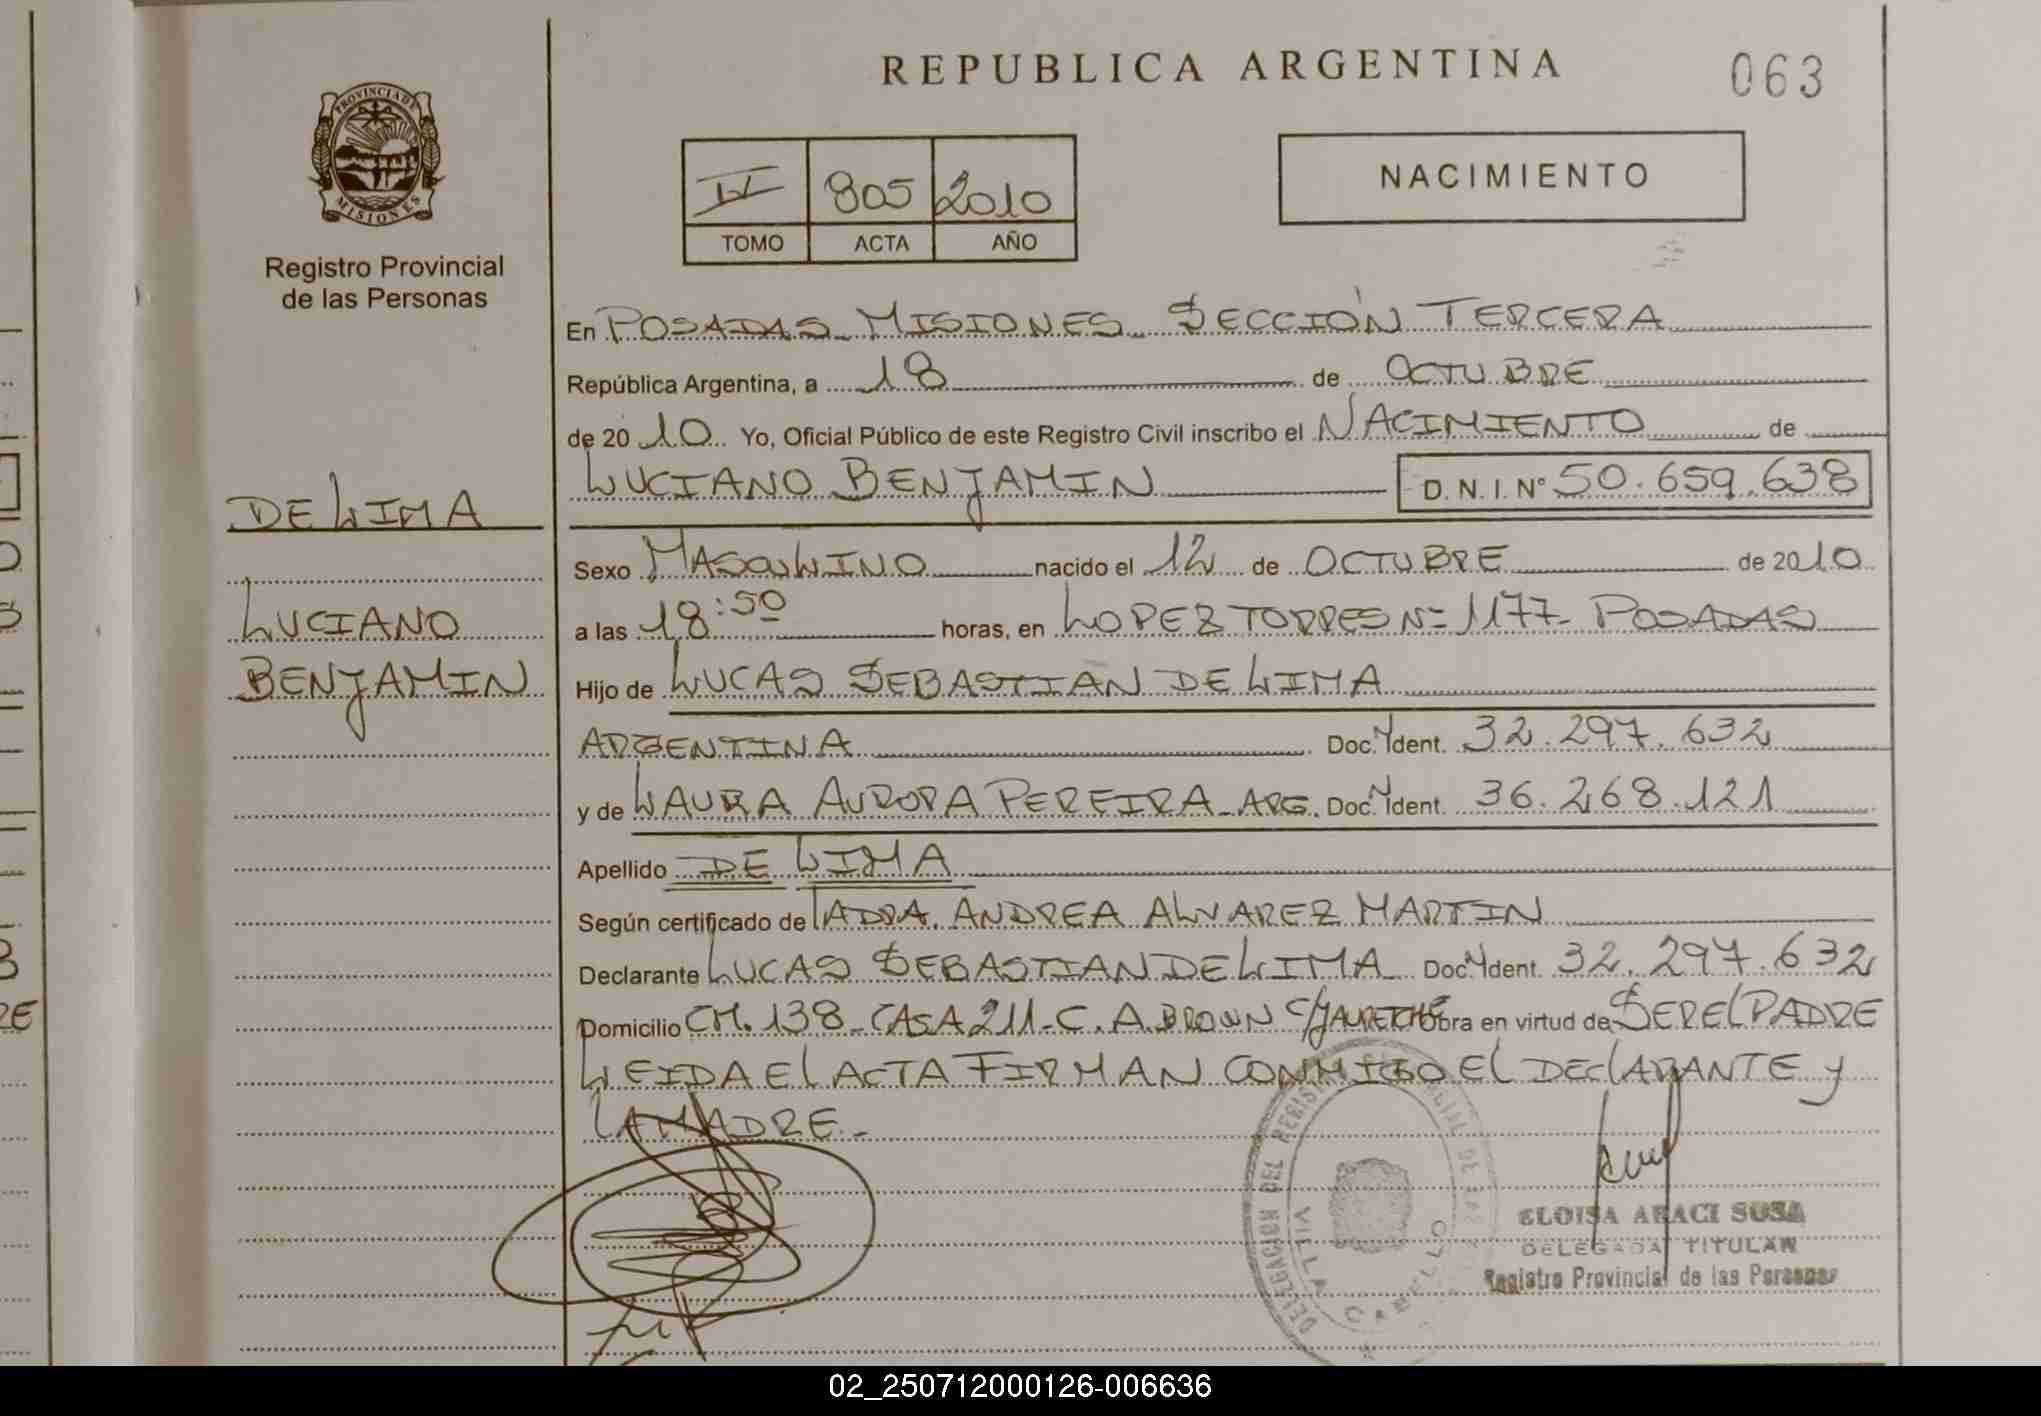 REPUBLICA ARGENTINA
063
PROVINCIA DE
MISIONES
Registro Provincial
de las Personas
IV 805 2010
TOMO ACTA AÑO
NACIMIENTO
En POSADAS MISIONES SECCIÓN TERCERA
República Argentina, a 18 de OCTUBRE
de 2010 Yo, Oficial Público de este Registro Civil inscribo el NACIMIENTO de
LUCIANO BENJAMIN D.N.I. Nº 50.659.638
DE LIMA
Sexo MASCULINO nacido el 12 de OCTUBRE de 2010
LUCIANO
a las 18:50 horas, en LOPEZ TORRES Nº 1177- POSADAS
BENJAMIN
Hijo de LUCAS SEBASTIAN DE LIMA
ARGENTINA Doc. Ident. 32.297.632
y de LAURA AURORA PEREIRA - ARG. Doc. Ident. 36.268.121
Apellido DE LIMA
Según certificado de LA DRA. ANDREA ALVAREZ MARTIN
Declarante LUCAS SEBASTIAN DE LIMA Doc. Ident. 32.297.632
Domicilio CH. 138 - CASA 211 - C. A. BROWN C/JAURETCHE Obra en virtud de SER EL PADRE
LEIDA EL ACTA FIRMAN CONMIGO EL DECLARANTE y
LA MADRE.-
DELEGACION DEL REGISTRO
VILLA CABELLO
ELOISA ARACI SOSA
DELEGADA TITULAR
Registro Provincial de las Personas
02_250712000126-006636